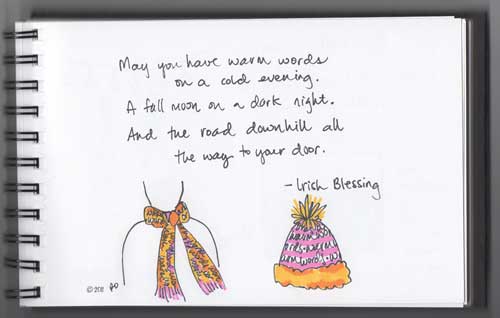 May you have warm words
on a cold evening.
A full moon on a dark night.
And the road downhill all
the way to your door.
- Irish Blessing
warm wo
words-warm
arm words-w